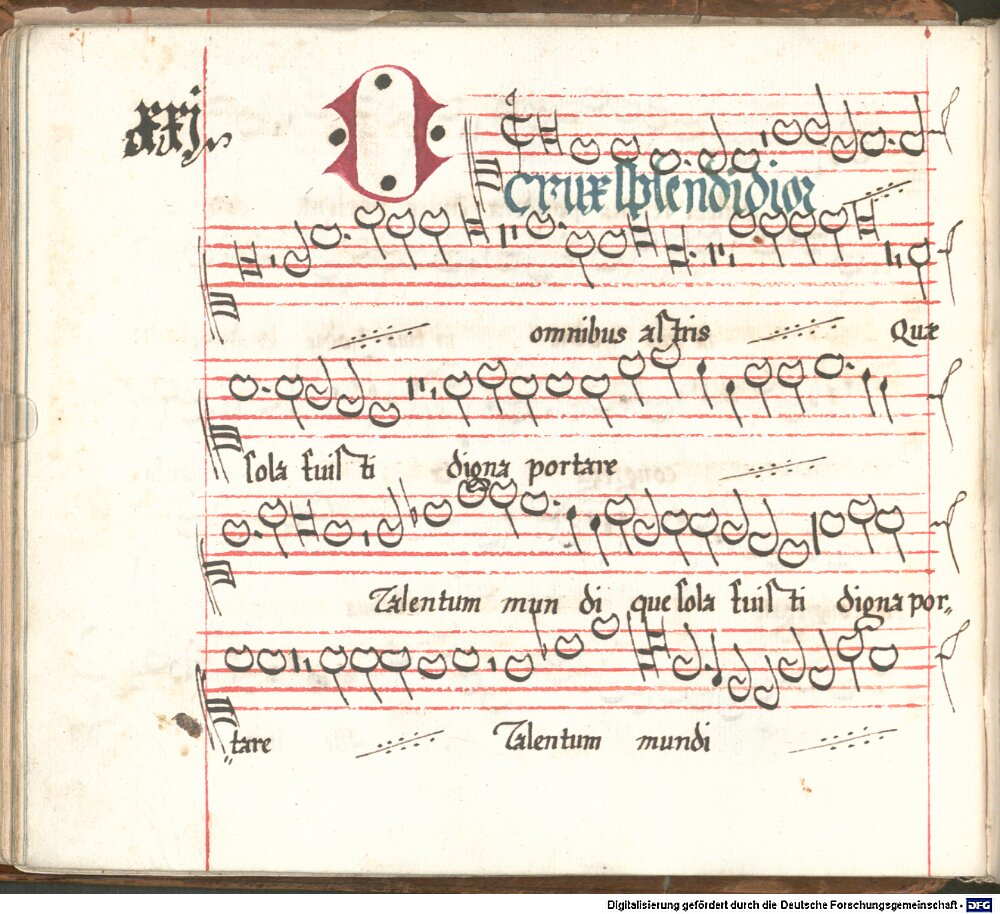 xxj.
O Crux splendidior
omnibus astris Quæ
sola fuisti digna portare
Talentum mundi que sola fuisti digna por„
„tare Talentum mundi
Digitalisierung gefördert durch die Deutsche Forschungsgemeinschaft - DFG